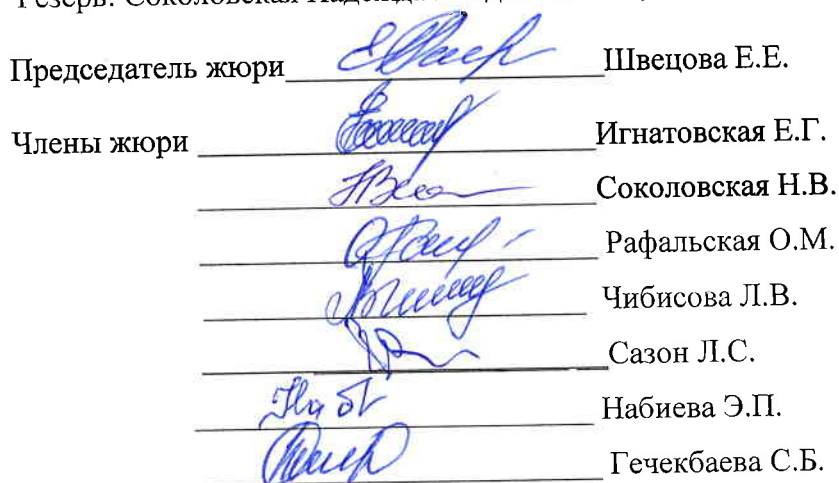 Резерв: Соколовская Надежда
Председатель жюри Швецова Е.Е.
Члены жюри Игнатовская Е.Г.
Соколовская Н.В.
Рафальская О.М.
Чибисова Л.В.
Сазон Л.С.
Набиева Э.П.
Гечекбаева С.Б.